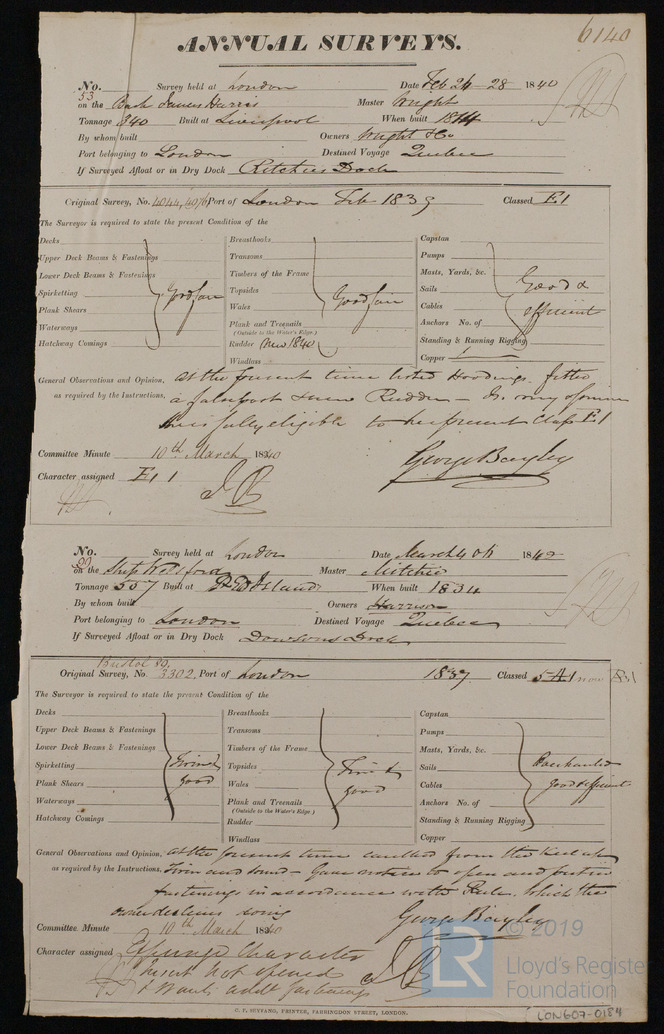 6140
ANNUAL SURVEYS.
No. 53 Survey held at London Date Feb 24 - 28 1840
on the Bark James Harris Master Wright
Tonnage 340 Built at Liverpool When built 1814
By whom built Owners Wright & Co
Port belonging to London Destined Voyage Quebec
If Surveyed Afloat or in Dry Dock Ritchies Dock
Original Survey, No. 4044, 4076 Port of London Feb 1839 Classed E1
The Surveyor is required to state the present Condition of the
Decks Breasthooks Capstan
Upper Deck Beams & Fastenings Transoms Pumps
Lower Deck Beams & Fastenings Timbers of the Frame Masts, Yards, &c.
Spirketting Good fair Topsides Good fair Sails Good &
Plank Shears Wales Cables efficient
Waterways Plank and Treenails Anchors No. of
(Outside to the Water's Edge.)
Hatchway Comings Rudder New 1840 Standing & Running Rigging
Windlass Copper
General Observations and Opinion, at the present time listed Hoodings, fitted
as required by the Instructions, a falsepost & new Rudder - In my opinion
is fully eligible to her present Class E1
Committee Minute 10th March 1840 George Bayley
Character assigned E1 1
No. 90 Survey held at London Date March 4th 1840
on the Ship Wexford Master Mitchie
Tonnage 557 Built at P. E. Island When built 1834
By whom built Owners Harrison
Port belonging to London Destined Voyage Quebec
If Surveyed Afloat or in Dry Dock Dowsons Dock
Bristol 80.
Original Survey, No. 3302. Port of London 1837 Classed 5 A1 now
The Surveyor is required to state the present Condition of the
Decks Breasthooks Capstan
Upper Deck Beams & Fastenings Transoms Pumps
Lower Deck Beams & Fastenings Timbers of the Frame Masts, Yards, &c.
Spirketting Firm & Topsides Firm & Sails Overhauled
Plank Shears good Wales good Cables good & efficient
Waterways Plank and Treenails Anchors No. of
(Outside to the Water's Edge.)
Hatchway Comings Rudder Standing & Running Rigging
Windlass Copper
General Observations and Opinion, at the present time caulked from the Keel up
as required by the Instructions, Firm and sound - Gave notice to open and further
fastenings in accordance with Rule. Which the
owner declines doing
George Bayley
Committee Minute 10th March 1840
Character assigned Expunge Character
not opened
& wants addl fastenings
© 2019
LR
Lloyd's Register
Foundation
C. F. SEYFANG, PRINTER, FARRINGDON STREET, LONDON.
LON607-0184